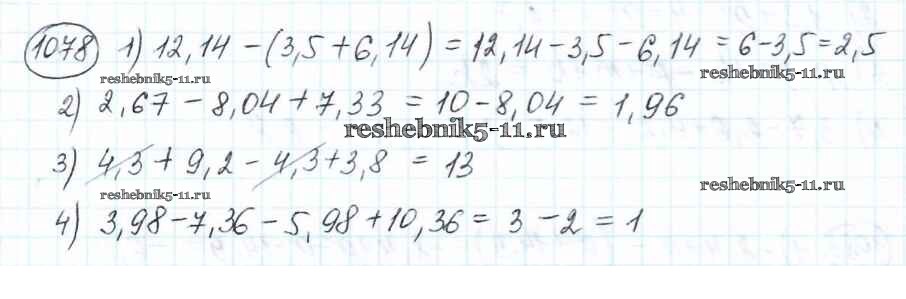 1078 1) 12,14 - (3,5 + 6,14) = 12,14 - 3,5 - 6,14 = 6 - 3,5 = 2,5
reshebnik5-11.ru reshebnik5-11.ru
2) 2,67 - 8,04 + 7,33 = 10 - 8,04 = 1,96
reshebnik5-11.ru
3) 4,3 + 9,2 - 4,3 + 3,8 = 13
reshebnik5-11.ru reshebnik5-11.ru
4) 3,98 - 7,36 - 5,98 + 10,36 = 3 - 2 = 1